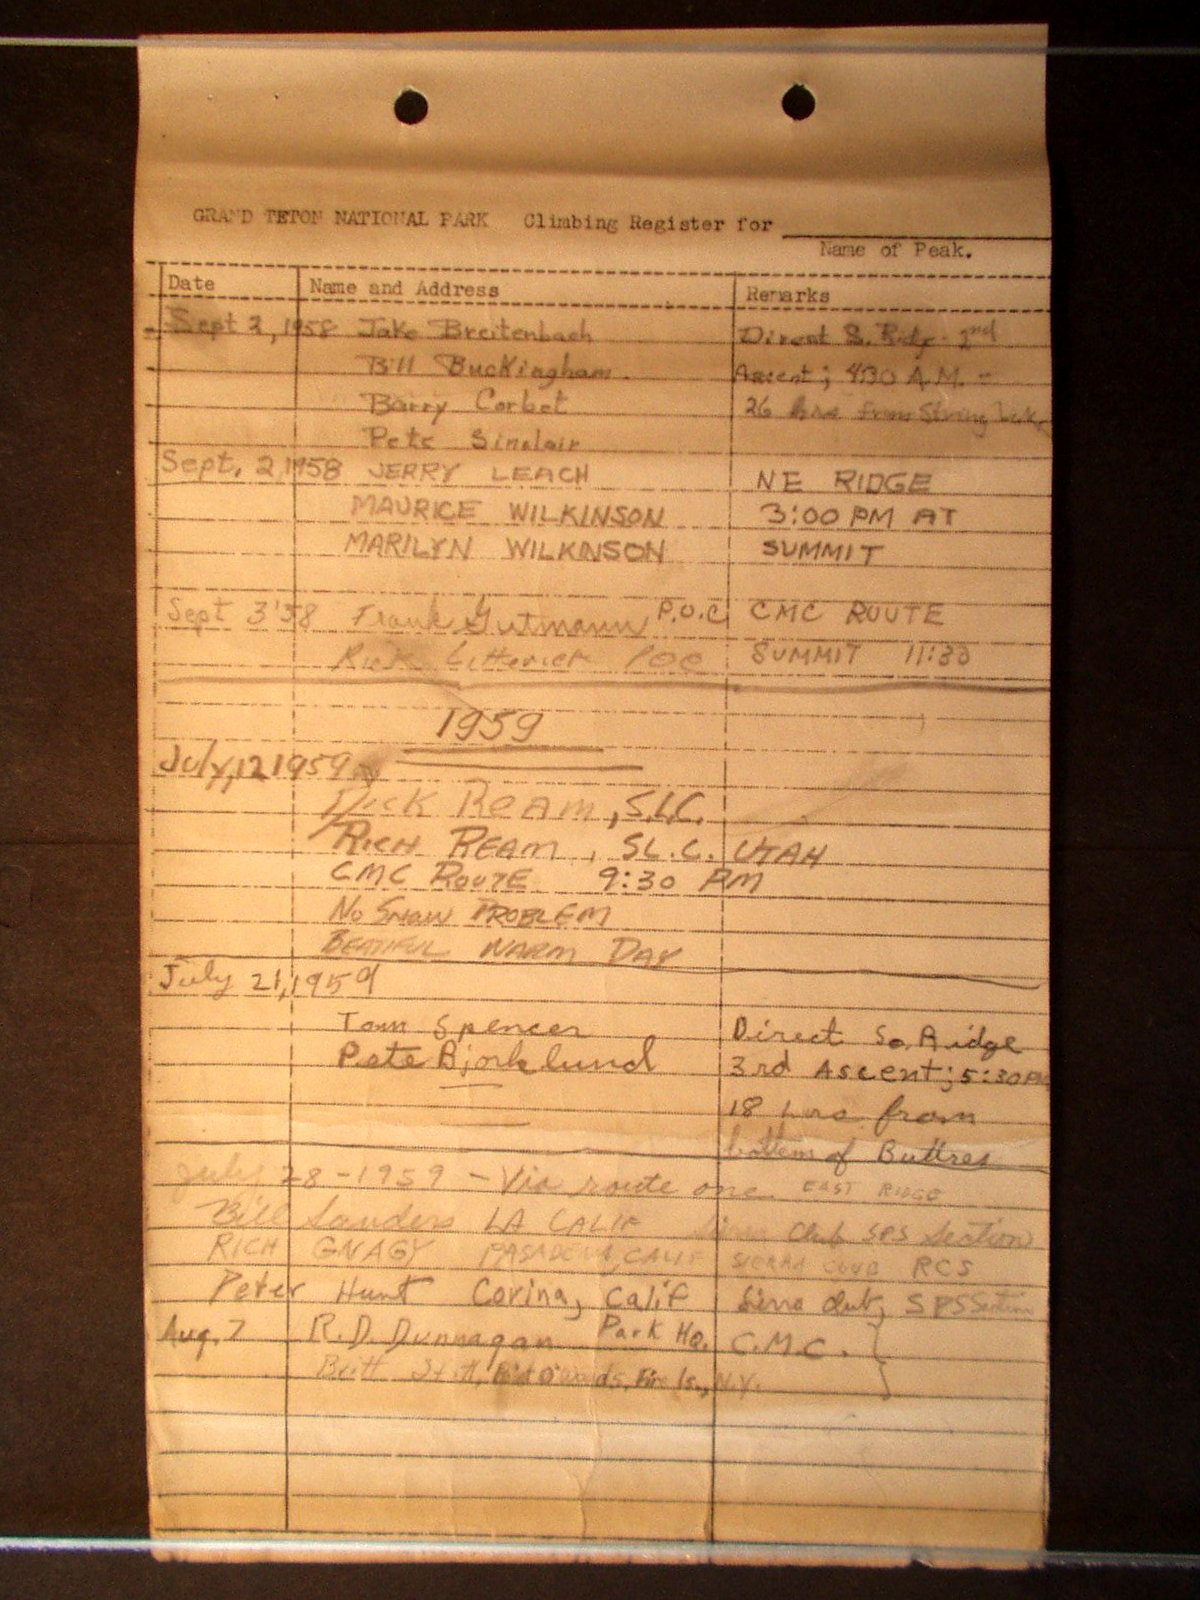 GRAND TETON NATIONAL PARK Climbing Register for
Name of Peak.
Date Name and Address Remarks
Sept 2, 1958 Jake Breitenbach Direct S. Ridge - 2nd
Bill Buckingham Ascent; 4:30 A.M. -
Barry Corbet 26 hrs from String Lake
Pete Sinclair
Sept. 2, 1958 JERRY LEACH NE RIDGE
MAURICE WILKINSON 3:00 PM AT
MARILYN WILKINSON SUMMIT
Sept 3 '58 Frank Gutmann P.O.C CMC ROUTE
Rick Litterick POC SUMMIT 11:30
1959
July, 12 1959
Dick Ream, S.L.C.
RICH REAM, SL.C. UTAH
CMC ROUTE 9:30 PM
No Snow PROBLEM
BEATIFUL WARM DAY
July 21, 1959
Tom Spencer Direct So. Ridge
Pete Bjorklund 3rd Ascent; 5:30 PM
18 hrs from
bottom of Buttres
July 28 - 1959 - Via route one EAST RIDGE
Bill Sanders LA CALIF Sierra Club SPS Section
RICH GNAGY PASADENA, CALIF SIERRA CLUB RCS
Peter Hunt Covina, Calif Sierra Club, SPS Section
Aug. 7 R.D. Dunnagan Park Hq. C.M.C.
Britt Point O' Woods, Fire Is., N.Y.